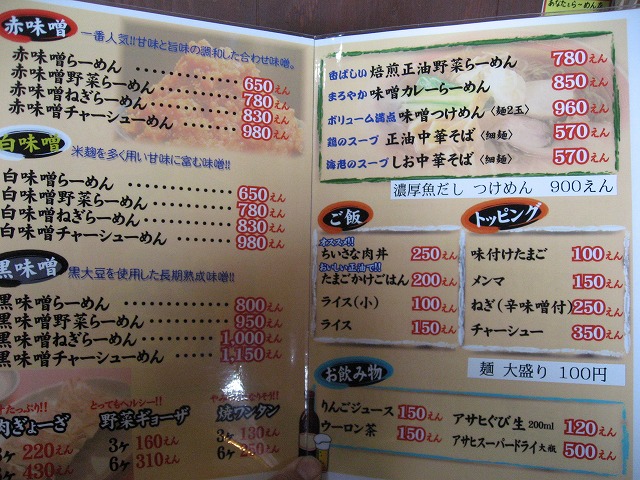 赤味噌
一番人気!!甘味と旨味の調和した合わせ味噌。
赤味噌らーめん ・・・・・・・・・・ 650えん
赤味噌野菜らーめん ・・・・・・・ 780えん
赤味噌ねぎらーめん ・・・・・・・ 830えん
赤味噌チャーシューめん ・・・・ 980えん
白味噌
米麹を多く用い甘味に富む味噌!!
白味噌らーめん ・・・・・・・・・・ 650えん
白味噌野菜らーめん ・・・・・・・ 780えん
白味噌ねぎらーめん ・・・・・・・ 830えん
白味噌チャーシューめん ・・・・ 980えん
黒味噌
黒大豆を使用した長期熟成味噌!!
黒味噌らーめん ・・・・・・・・・・ 800えん
黒味噌野菜らーめん ・・・・・・・ 950えん
黒味噌ねぎらーめん ・・・・・・・ 1,000えん
黒味噌チャーシューめん ・・・・ 1,150えん
たっぷり!!
肉ぎょーざ
3ヶ 220えん
6ヶ 430えん
とってもヘルシー!!
野菜ギョーザ
3ヶ 160えん
6ヶ 310えん
焼ワンタン
3ヶ 130えん
6ヶ 250えん
あなたとらーめん店
香ばしい 焙煎正油野菜らーめん 780えん
まろやか 味噌カレーらーめん 850えん
ボリューム満点 味噌つけめん〈麺2玉〉 960えん
鶏のスープ 正油中華そば〈細麺〉 570えん
海老のスープ しお中華そば〈細麺〉 570えん
濃厚魚だし つけめん 900えん
ご飯
オススメ!!
ちいさな肉丼 250えん
おいしい正油で!!
たまごかけごはん 200えん
ライス(小) 100えん
ライス 150えん
トッピング
味付けたまご 100えん
メンマ 150えん
ねぎ(辛味噌付) 250えん
チャーシュー 350えん
麺 大盛り 100円
お飲み物
りんごジュース 150えん
ウーロン茶 150えん
アサヒぐび生 200ml 120えん
アサヒスーパードライ 大瓶 500えん